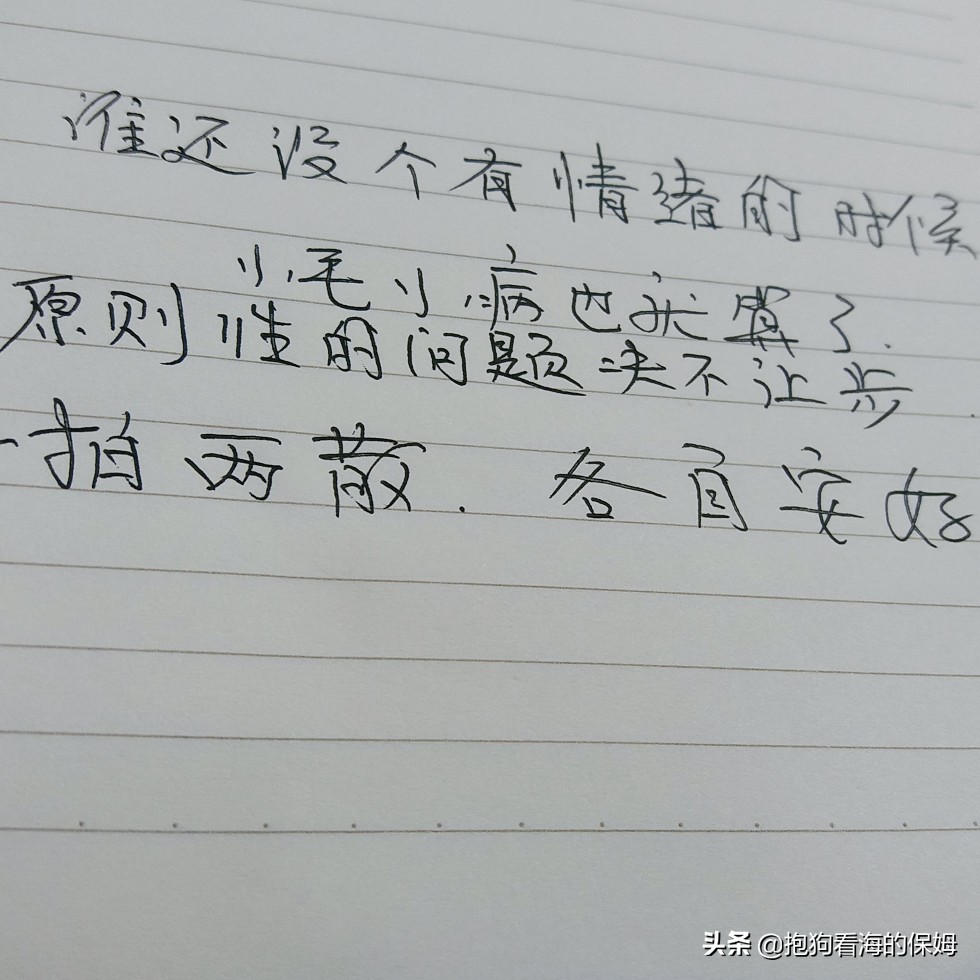 谁还没个有情绪的时候
小毛小病也就算了.
原则性的问题决不让步.
一拍两散. 各自安好
头条 @抱狗看海的保姆